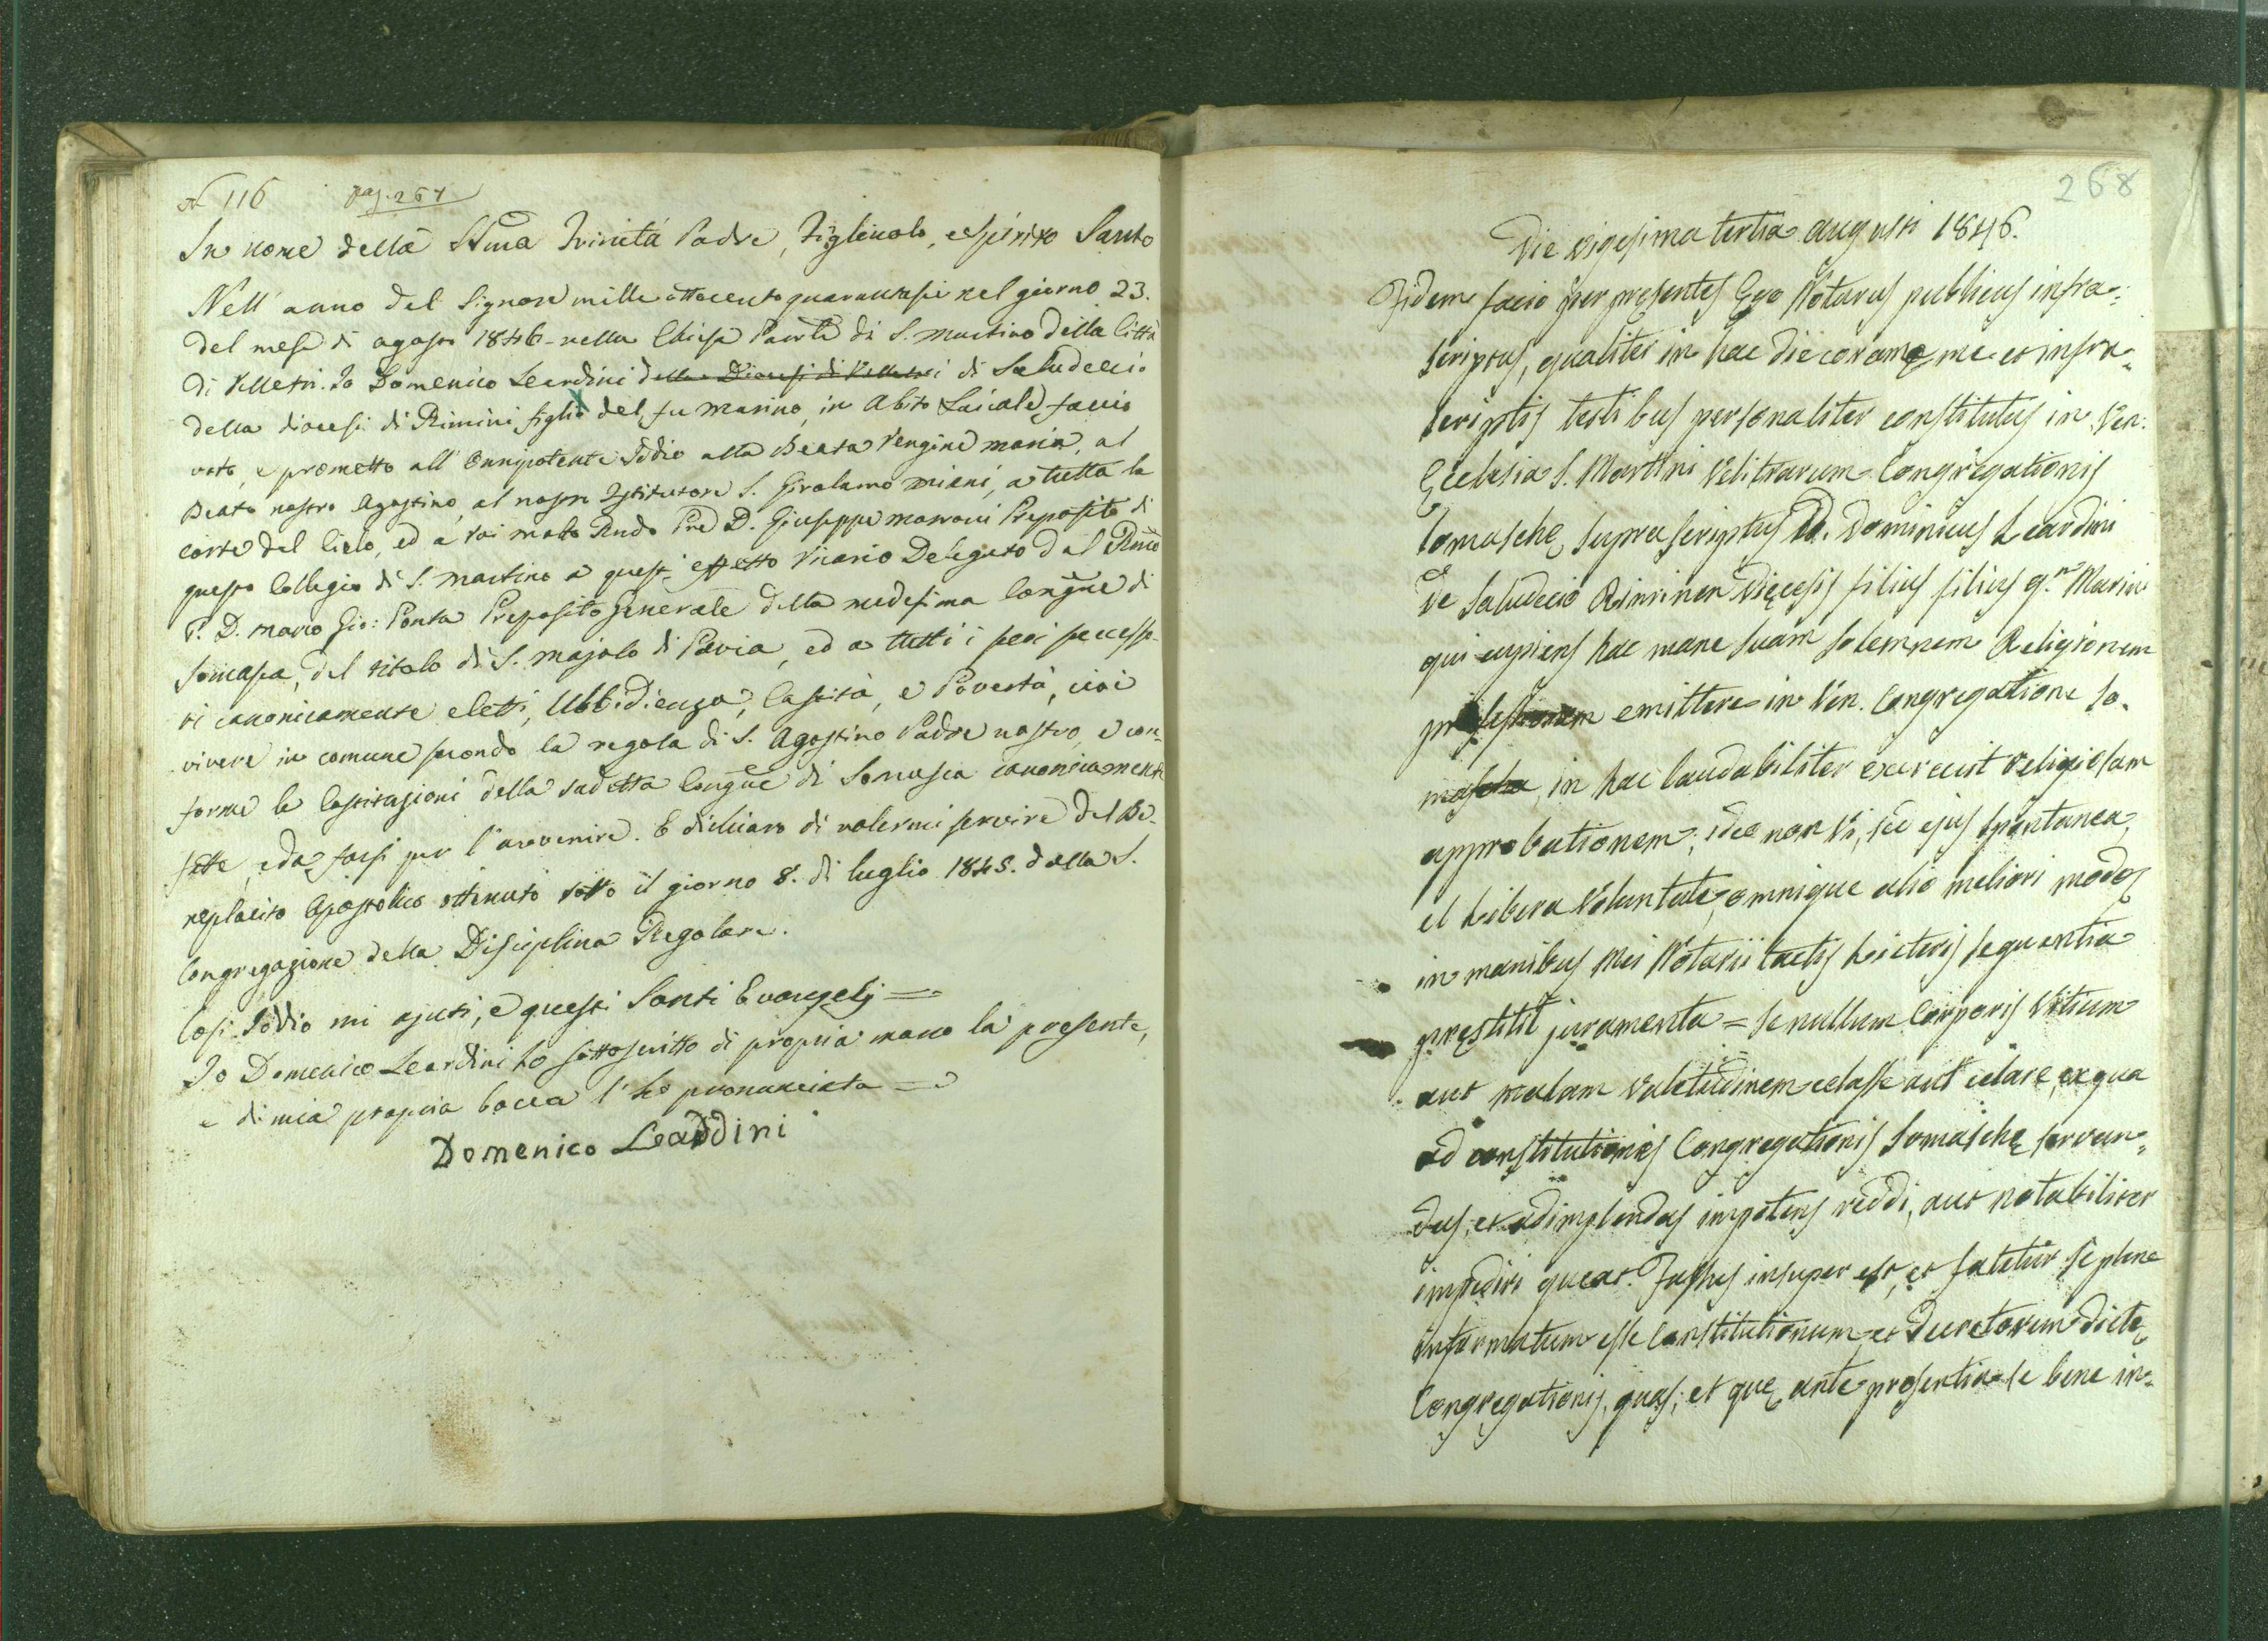 N 116 pag. 267
In nome della SSma Trinità Padre, Figliuolo, e Spirito Santo
Nell' anno del Signore mille ottocento quarantasei nel giorno 23.
del mese di agosto 1846 - nella Chiesa Parrle di S. Martino della Città
di Velletri. Io Domenico Leardini della Diocesi di Velletri di Saludecio
della diocesi di Rimini figlio del fu Marino, in Abito Laicale, faccio
voto, e prometto all' Onnipotente Iddio alla Beata Vergine Maria, al
Beato nostro Agostino, al nostro Istitutore S. Girolamo Miani, a tutta la
corte del Cielo, ed a voi molto Rndo Pre D. Giuseppe Marconi Preposito di
questo Collegio di S. Martino a quest' effetto Vicario Delegato dal Rmo
P. D. Marco Gio: Ponta Preposito Generale della medesima Congne di
Somasca, del titolo di S. Majolo di Pavia, ed a tutti i suoi successo-
ri canonicamente eletti, Ubbidienza, Castità, e Povertà, cioè
vivere in comune secondo la regola di S. Agostino Padre nostro, e con-
forme le Costituzioni della sudetta Congne di Somasca canonicamente
fatte, e da farsi per l'avvenire. E dichiaro di volermi servire del Be-
neplacito Apostolico ottenuto sotto il giorno 8. di luglio 1845. dalla S.
Congregazione della Disciplina Regolare.
Così Iddio mi ajuti, e questi Santi Evangelj =
Io Domenico Leardini ho sottoscritto di propria mano la presente,
e di mia propria bocca l' ho pronunciata =
Domenico Leardini
268
Die vigesima tertia augusti 1846.
Fidem facio per presentes Ego Notarius publicus infra=
scriptus, qualiter in hac die coram me et infra=
scriptis testibus personaliter constitutus in Ven:
Ecclesia S. Martini Velitrarum Congregationis
Somaschę supra scriptus D. Dominicus Leardini
de Saludecio Riminen Dięcesis filius filius q.m Marini
qui cupiens hac mane suam solemnem Religionem
professionem emittere in Ven. Congregatione So-
mascha, in hac laudabiliter exercuit religiosam
approbationem; ideo non vi, sed ejus spontanea,
et libera voluntate, omnique alio meliori modo
in manibus Mei Notarii tactis Licteris sequentia
pręstitit juramenta = Se nullum Corporis vitium
aut malam valetudinem celasse aut celare, ex qua
ad constitutiones Congregationis Somaschę servan=
das, et adimplendas impotens reddi, aut notabiliter
impediri queat. Fassus insuper est, et fatetur se plene
informatum esse Constitutionum et Decretorum dictę
Congregationis, quas, et quę ante prosertim se bene in=